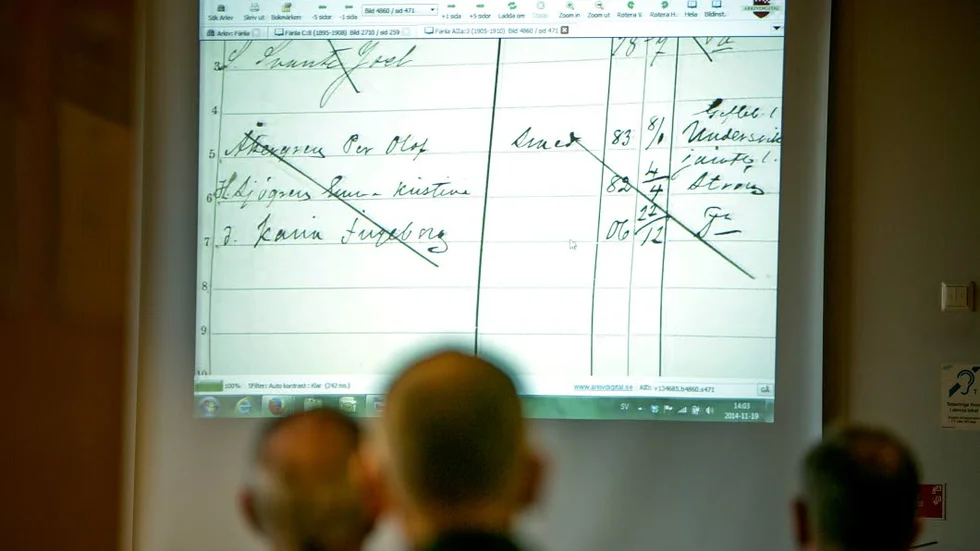 Sök Arkiv Skriv ut Bokmärken -5 sidor -1 sida Bild 4860 / sid 471 +1 sida +5 sidor Ladda om Zoom in Zoom ut Rotera V. Rotera H. Hela Bildinst.
ARKIVDIGITAL
Arkiv: Färila Färila C:8 (1895-1908) Bild 2710 / sid 259 Färila AIIa:3 (1905-1910) Bild 4860 / sid 471
3 S. Svante Joel 28 7
4
Gefleb. l.
5 Åkergren Per Olof Smed 83 8/1 Undersvik
Jämtl. l.
6 H. Sjögren Kristina 82 4/4 Ström
7 d. Karin Ingeborg 06 22/12
8
9
10
100% SFilter: Auto kontrast : Klar (242 ms.) www.arkivdigital.se AID: v134685.b4860.s471 GÅ
SV 14:03
2014-11-19
T